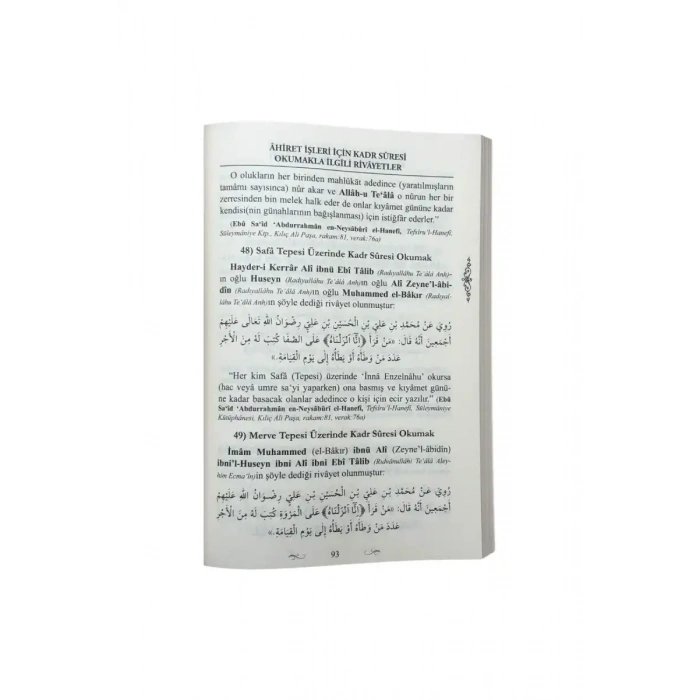 ÂHİRET İŞLERİ İÇİN KADR SÛRESİ
OKUMAKLA İLGİLİ RİVÂYETLER
O olukların her birinden mahlûkāt adedince (yaratılmışların
tamâmı sayısınca) nûr akar ve Allâh-u Te‘âlâ o nûrun her bir
zerresinden bin melek halk eder de onlar kıyâmet gününe kadar
kendisi(nin günahlarının bağışlanması) için istiğfâr ederler.”
(Ebû Sa‘îd ‘Abdurrahmân en-Neysâbûrî el-Hanefî, Tefsîru’l-Hanefî,
Süleymâniye Ktp., Kılıç Ali Paşa, rakam:81, verak:76a)
48) Safâ Tepesi Üzerinde Kadr Sûresi Okumak
Hayder-i Kerrâr Alî ibnü Ebî Tâlib (Radıyallâhu Te‘âlâ Anh)ın
oğlu Huseyn (Radıyallâhu Te‘âlâ Anh)ın oğlu Alî Zeyne’l-âbi-
dîn (Radıyallâhu Te‘âlâ Anh)ın oğlu Muhammed el-Bâkır (Radıyal-
lâhu Te‘âlâ Anh)ın şöyle dediği rivâyet olunmuştur:
رُوِيَ عَنْ مُحَمَّدِ بْنِ عَلِيِّ بْنِ الْحُسَيْنِ بْنِ عَلِيٍّ رِضْوَانُ اللَّهِ تَعَالَى عَلَيْهِمْ
أَجْمَعِينَ أَنَّهُ قَالَ: «مَنْ قَرَأَ ﴿إِنَّا أَنْزَلْنَاهُ﴾ عَلَى الصَّفَا كُتِبَ لَهُ مِنَ الْأَجْرِ
عَدَدَ مَنْ وَطَأَهُ أَوْ يَطَأُهُ إِلَى يَوْمِ الْقِيَامَةِ.»
“Her kim Safâ (Tepesi) üzerinde ‘İnnâ Enzelnâhu’ okursa
(hac veyâ umre sa‘yi yaparken) ona basmış ve kıyâmet günü-
ne kadar basacak olanlar adedince o kişi için ecir yazılır.” (Ebû
Sa‘îd ‘Abdurrahmân en-Neysâbûrî el-Hanefî, Tefsîru’l-Hanefî, Süleymâniye
Kütüphânesi, Kılıç Ali Paşa, rakam:81, verak:76a)
49) Merve Tepesi Üzerinde Kadr Sûresi Okumak
İmâm Muhammed (el-Bâkır) ibnü Alî (Zeyne’l-âbidîn)
ibni’l-Huseyn ibni Alî ibni Ebî Tâlib (Rıdvânullâhi Te‘âlâ Aley-
him Ecma‘în)in şöyle dediği rivâyet olunmuştur:
رُوِيَ عَنْ مُحَمَّدِ بْنِ عَلِيِّ بْنِ الْحُسَيْنِ بْنِ عَلِيٍّ رِضْوَانُ اللَّهِ عَلَيْهِمْ
أَجْمَعِينَ أَنَّهُ قَالَ: «مَنْ قَرَأَ ﴿إِنَّا أَنْزَلْنَاهُ﴾ عَلَى الْمَرْوَةِ كُتِبَ لَهُ مِنَ الْأَجْرِ
عَدَدَ مَنْ وَطَأَهُ أَوْ يَطَأُهُ إِلَى يَوْمِ الْقِيَامَةِ.»
93